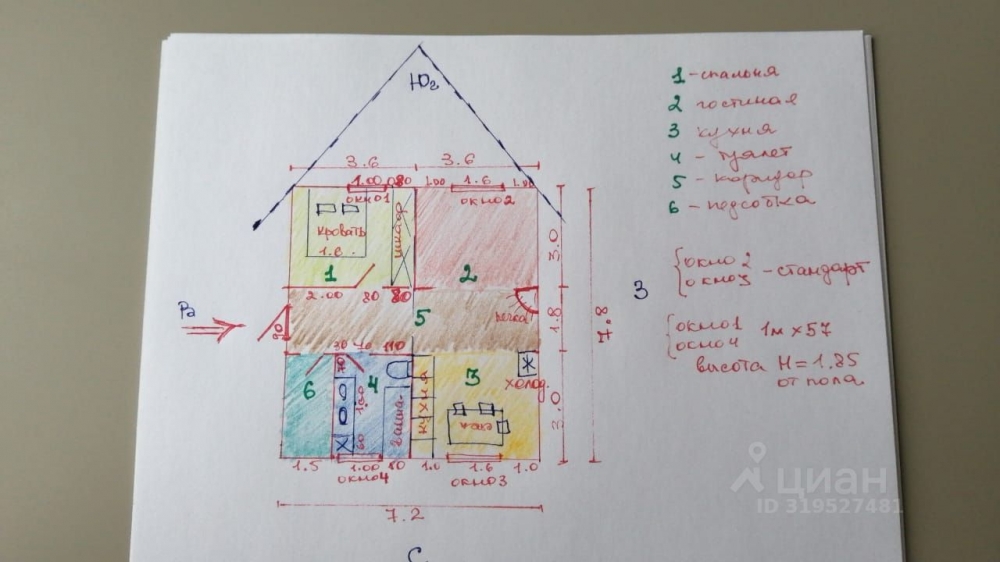 Юг
3.6 3.6
1.00 80
окно1
1.00 1.6 1.00
окно2
кровать
1.6.
шкаф
1
2
2.00 80 80
3.0
1.8
3.0
7.8
Ра
90
5
печка
30 70 110
70
6
4
3
кухня
холод.
стол
1.00
60
1.5 1.00 80 1.0 1.6 1.0
окно4 окно3
7.2
С
З
1 - спальня
2 гостиная
3 кухня
4 - туалет
5 - коридор
6 - подсобка
окно 2
окно3 - стандарт
окно1 1м × 57
окно4
высота H = 1.85
от пола
циан
ID 319527481